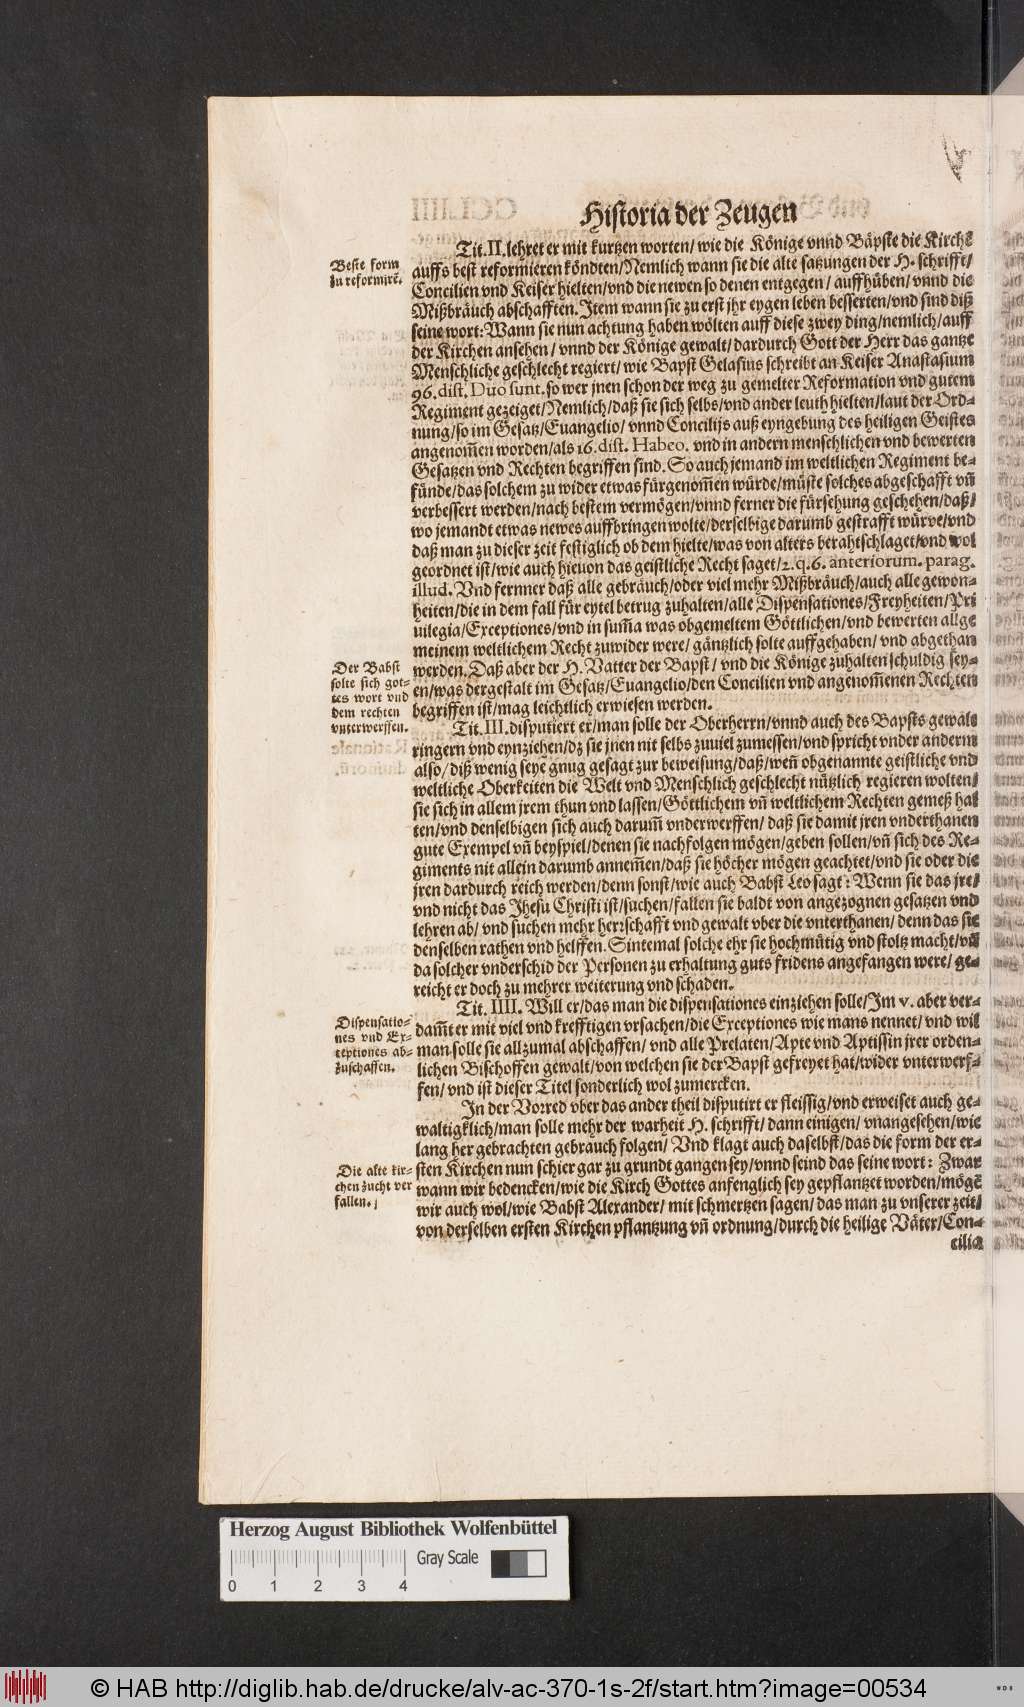 Historia der Zeugen
Tit. II. lehret er mit kurtzen worten/ wie die Könige vnnd Bäpste die Kirchē
auffs best reformieren köndten/Nemlich wann sie die alte satzungen der H. schrifft/
Concilien vnd Keiser hielten/vnd die newen so denen entgegen/ auffhüben/ vnnd die
Mißbräuch abschafften. Item wann sie zu erst jhr eygen leben besserten/vnd sind diß
seine wort: Wann sie nun achtung haben wölten auff diese zwey ding/nemlich/auff
der Kirchen ansehen/ vnnd der Könige gewalt/ dardurch Gott der Herr das gantze
Menschliche geschlecht regiert/ wie Bapst Gelasius schreibt an Keiser Anastasium
96. dist. Duo sunt. so wer jnen schon der weg zu gemelter Reformation vnd gutem
Regiment gezeiget/Nemlich/daß sie sich selbs/vnd ander leuth hielten/laut der Ord-
nung/so im Gesatz/Euangelio/ vnnd Concilijs auß eyngebung des heiligen Geistes
angenom̃en worden/als 16. dist. Habeo. vnd in andern menschlichen vnd bewerten
Gesatzen vnd Rechten begriffen sind. So auch jemand im weltlichen Regiment be-
fünde/das solchem zu wider etwas fürgenom̃en würde/müste solches abgeschafft vñ
verbessert werden/nach bestem vermögen/vnnd ferner die fürsehung geschehen/daß/
wo jemandt etwas newes auffbringen wolte/derselbige darumb gestrafft würde/vnd
daß man zu dieser zeit festiglich ob dem hielte/was von alters berahtschlaget/vnd wol
geordnet ist/wie auch hieuon das geistliche Recht saget/2. q. 6. anteriorum. parag.
illud. Vnd fernner daß alle gebräuch/oder viel mehr Mißbräuch/auch alle gewon-
heiten/die in dem fall für eytel betrug zuhalten/alle Dispensationes/Freyheiten/Pri
uilegia/Exceptiones/vnd in sum̃a was obgemeltem Göttlichen/vnd bewerten allge
meinem weltlichem Recht zuwider were/ gäntzlich solte auffgehaben/ vnd abgethan
werden. Daß aber der H. Vatter der Bapst/ vnd die Könige zuhalten schuldig sey-
en/was dergestalt im Gesatz/Euangelio/den Concilien vnd angenom̃enen Rechten
begriffen ist/mag leichtlich erwiesen werden.
Tit. III. disputiert er/man solle der Oberherrn/vnnd auch des Bapsts gewält
ringern vnd eynziehen/dz sie jnen nit selbs zuuiel zumessen/vnd spricht vnder anderm
also/diß wenig seye gnug gesagt zur beweisung/daß/weñ obgenannte geistliche vnd
weltliche Oberkeiten die Welt vnd Menschlich geschlecht nützlich regieren wolten/
sie sich in allem jrem thun vnd lassen/Göttlichem vñ weltlichem Rechten gemeß hal
ten/vnd denselbigen sich auch darum̃ vnderwerffen/ daß sie damit jren vnderthanen
gute Exempel vñ beyspiel/denen sie nachfolgen mögen/geben sollen/vñ sich des Re-
giments nit allein darumb annem̃en/daß sie höcher mögen geachtet/vnd sie oder die
jren dardurch reich werden/denn sonst/wie auch Babst Leo sagt: Wenn sie das jre/
vnd nicht das Jhesu Christi ist/suchen/fallen sie baldt von angezognen gesatzen vnd
lehren ab/ vnd suchen mehr herrschafft vnd gewalt vber die vnterthanen/ denn das sie
denselben rathen vnd helffen. Sintemal solche ehr sie hochmütig vnd stoltz macht/vñ
da solcher vnderschid der Personen zu erhaltung guts fridens angefangen were/ ge-
reicht er doch zu mehrer weiterung vnd schaden.
Tit. IIII. Will er/das man die dispensationes einziehen solle/Im v. aber ver-
dam̃t er mit viel vnd krefftigen vrsachen/die Exceptiones wie mans nennet/ vnd wil
man solle sie allzumal abschaffen/ vnd alle Prelaten/Apte vnd Aptissin jrer orden-
lichen Bischoffen gewalt/von welchen sie der Bapst gefreyet hat/wider vnterwerf-
fen/ vnd ist dieser Titel sonderlich wol zumercken.
In der Vorred vber das ander theil disputirt er fleissig/vnd erweiset auch ge-
waltigklich/man solle mehr der warheit H. schrifft/ dann einigen/ vnangesehen/wie
lang her gebrachten gebrauch folgen/ Vnd klagt auch daselbst/das die form der er-
sten Kirchen nun schier gar zu grundt gangen sey/vnnd seind das seine wort: Zwar
wann wir bedencken/wie die Kirch Gottes anfenglich sey gepflantzet worden/mögē
wir auch wol/wie Babst Alexander/ mit schmertzen sagen/ das man zu vnserer zeit/
von derselben ersten Kirchen pflantzung vñ ordnung/durch die heilige Väter/Con-
cilia
Beste form
zu reformirē.
Der Babst
solte sich got-
tes wort vnd
dem rechten
vnterwerffen.
Dispensatio-
nes vnd Ex-
ceptiones ab-
zuschaffen.
Die alte kir-
chen zucht ver
fallen.
Herzog August Bibliothek Wolfenbüttel
Gray Scale
0 1 2 3 4
© HAB http://diglib.hab.de/drucke/alv-ac-370-1s-2f/start.htm?image=00534